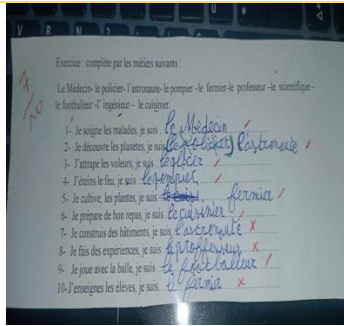 7/10
Exercice : complète par les métiers suivants
Le Médecin- le policier- l'astronaute- le pompier -le fermier-le professeur -le scientifique –
le footballeur -l' ingénieur – le cuisinier
1- Je soigne les malades, je suis le Medecin
2- Je découvre les planetes, je suis le policier) l'astronaute
3- J'attrape les voleurs, je suis
4- J'éteins le feu, je suis le pompier
5- Je cultive, les plantes, je suis fermier
6- Je prépare de bon repas, je suis le cuisinier
7- Je construis des bâtiments, je suis l'astronaute
8- Je fais des expériences, je suis le proffesseur
9- Je joue avec la balle, je suis le footballeur
10- J'enseignes les élèves, je suis le fermier